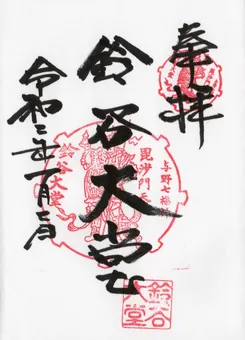 奉拝
鈴谷大堂
令和二年一月二日
与野七福
毘沙門天
鈴谷大堂
鈴谷
大堂